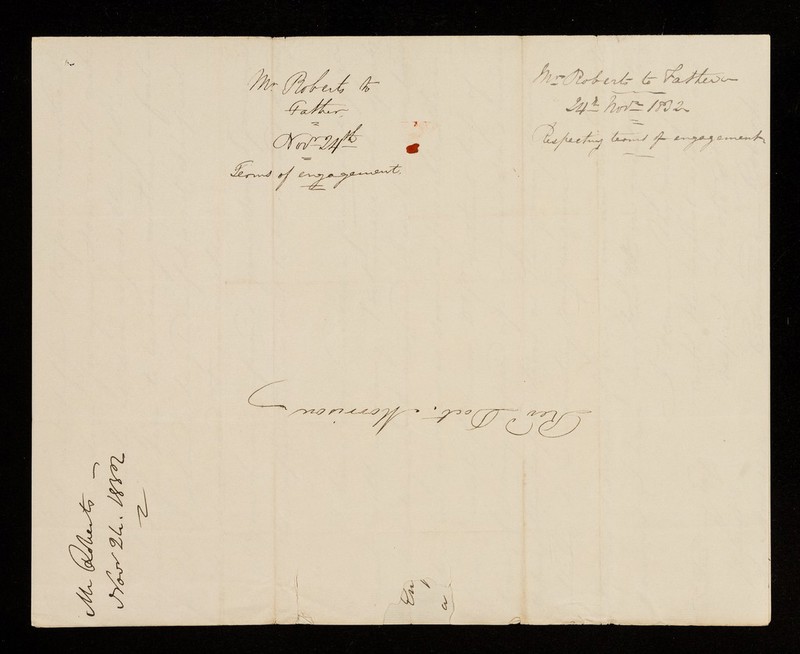 Mr Roberts to
Father.
Novr 24th
Terms of engagement.
Mr Roberts to Father
24th Novr 1832
Respecting terms of engagement
Revd Doct. Morrison
Mr Roberts
Novr 24. 1832